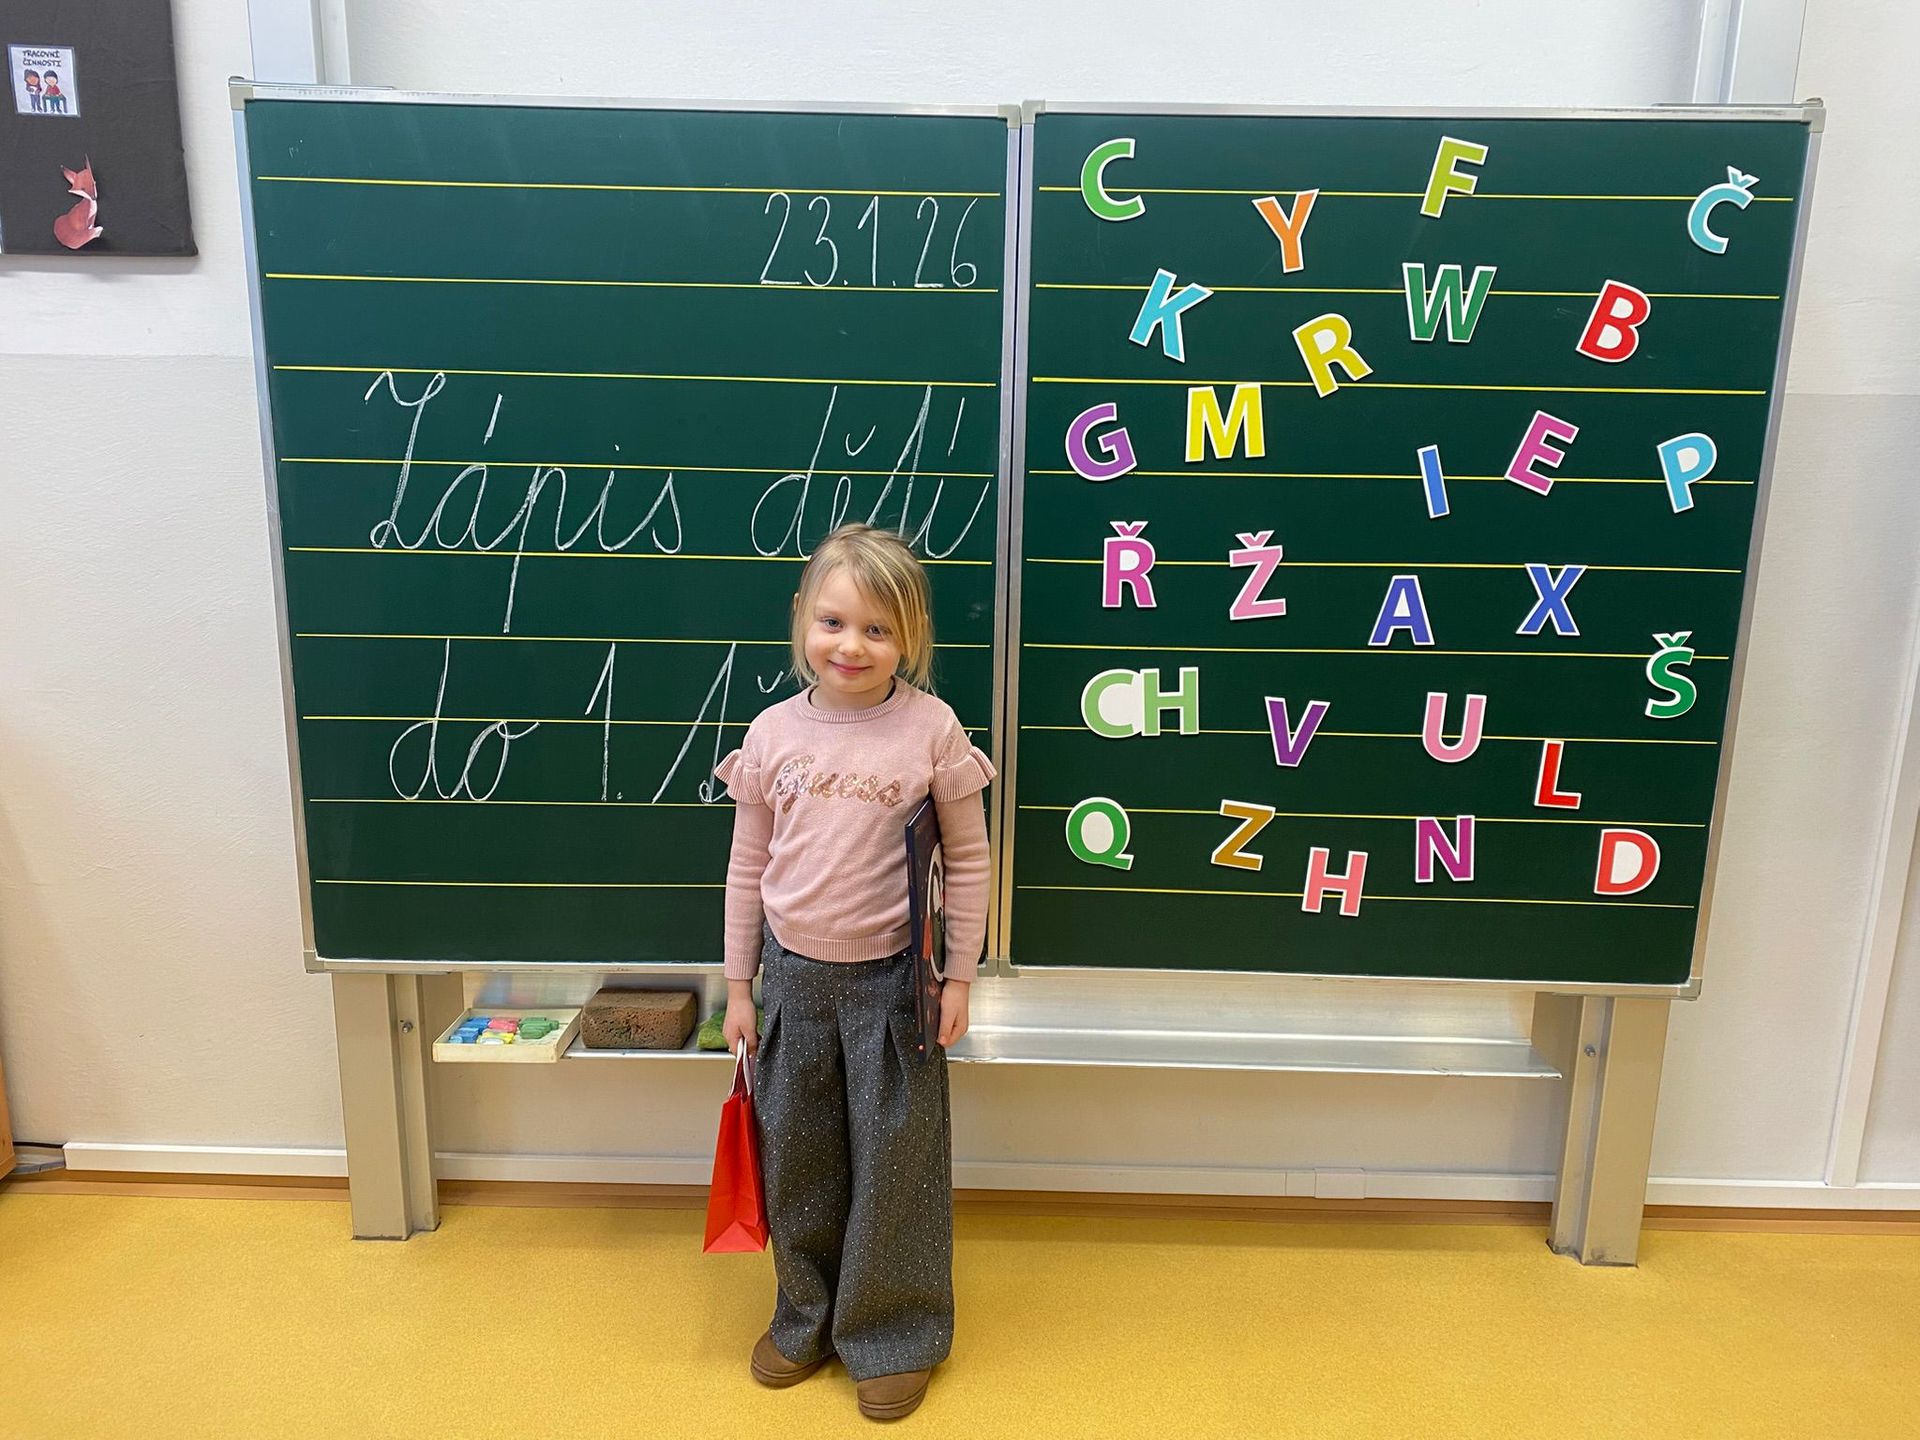 PRACOVNÍ
ČINNOSTI
23.1.26
Zápis dětí
do 1.
Guess
C Y F Č
K R W B
G M I E P
Ř Ž A X
CH V U L Š
Q Z H N D